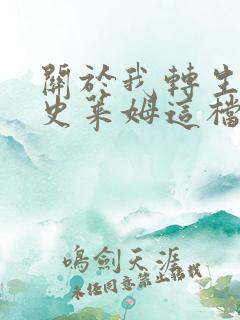 關於我轉生
史萊姆這檔
鳴劍天涯
未經同意禁止轉載